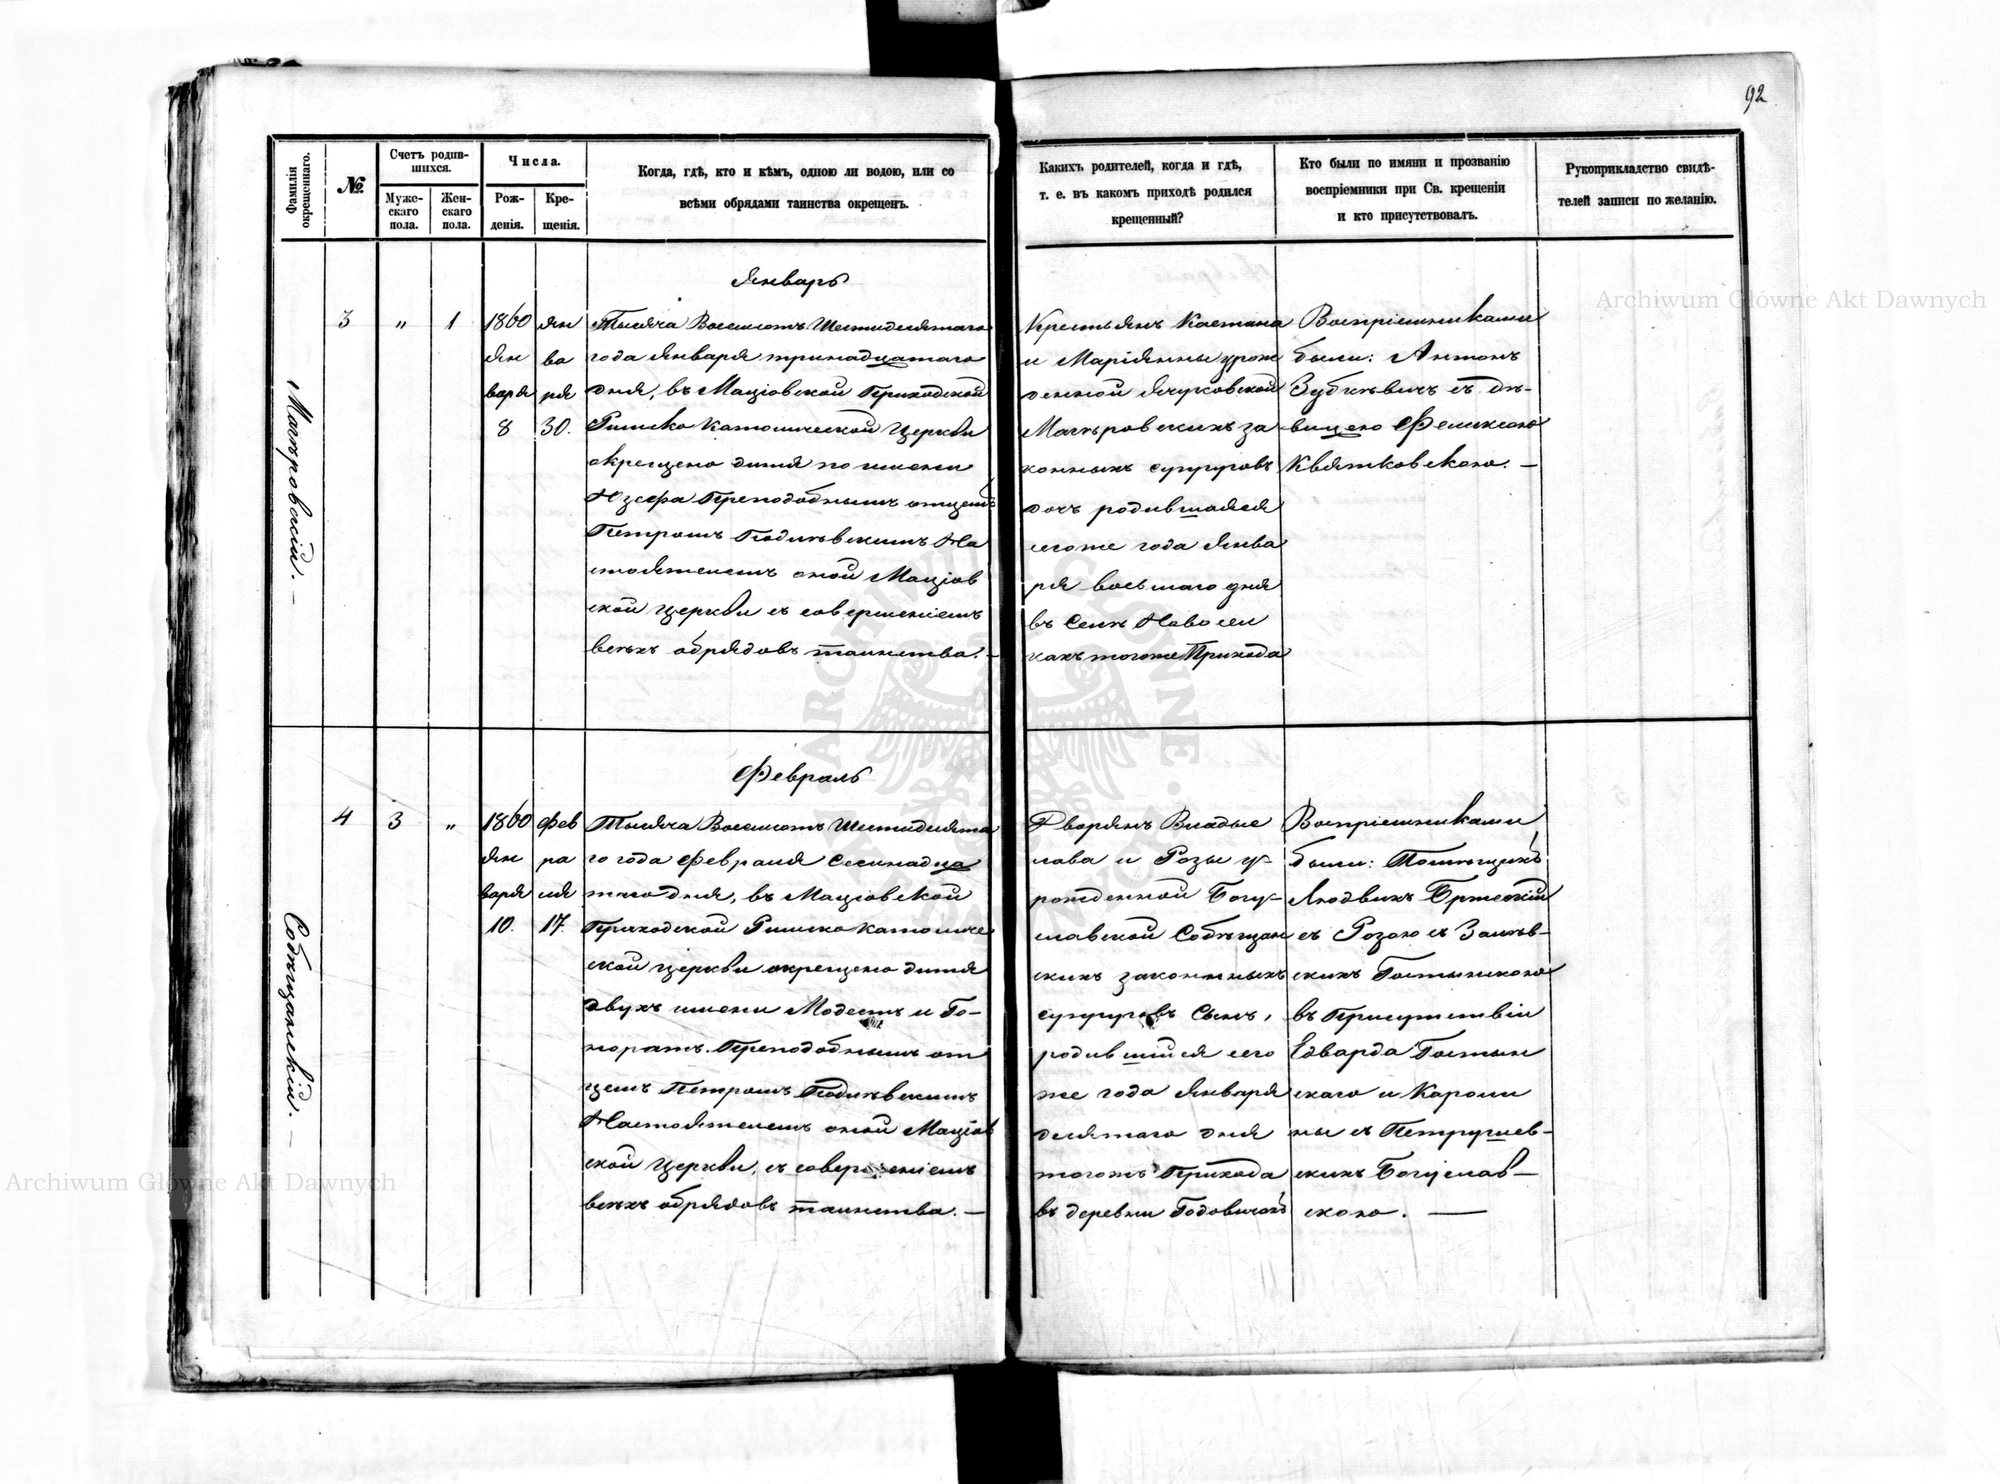 92
Фамилія
окрещеннаго.
№
Счетъ родив-
шихся.
Муже-
скаго
пола.
Жен-
скаго
пола.
Числа.
Рож-
денія.
Кре-
щенія.
Когда, гдѣ, кто и кѣмъ, одною ли водою, или со
всѣми обрядами таинства окрещенъ.
Какихъ родителей, когда и гдѣ,
т. е. въ какомъ приходѣ родился
крещенный?
Кто были по имяни и прозванію
воспріемники при Св. крещеніи
и кто присутствовалъ.
Рукоприкладство свидѣ-
телей записи по желанію.
Январь
3
"
1
1860
ян
варя
8
ян
ва
ря
30.
Тысяча Восемсотъ Шестидесятаго
года Января тринадцатаго
дня, въ Маціовской Приходской
Римско Католической Церкви
окрещено дитя по имени
Юзефа Преподобнымъ отцемъ
Петромъ Подлѣвскимъ На
стоятелемъ оной Маціов
ской Церкви съ совершеніемъ
всѣхъ обрядовъ таинства. —
Крестьянъ Каетана
и Маріянны урож
денной Ячурковской
Магѣровскихъ за
конныхъ супруговъ
дочъ родившаяся
сегоже года Янва
ря восьмаго дня
въ Селѣ Новосел
кахъ тогоже Прихода
Воспріемниками
были: Антонъ
Зубкѣвичъ съ дѣ-
вицею Феликсою
Квятковскою. —
Магѣровскій. —
Февраль
4
3
"
1860
ян
варя
10.
Фев
ра
ля
17.
Тысяча Восемсотъ Шестидесята
го года Февраля Семнадца
таго дня, въ Маціовской
Приходской Римско Католиче
ской Церкви окрещено дитя
двухъ имени Модестъ и Го-
норатъ. Преподобнымъ от
цемъ Петромъ Подлѣвскимъ
Настоятелемъ оной Маціов
ской Церкви, съ совершеніемъ
всѣхъ обрядовъ таинства. —
Дворянъ Владыс
лава и Розы у-
рожденной Богу-
славской Собѣщан
скихъ законныхъ
супруговъ Сынъ,
родившійся сего
же года Января
десятаго дня
тогожъ Прихода
въ деревни Годовичахъ
Воспріемниками
были: Помѣщикъ
Людвикъ Бржескій
съ Розою съ Залѣв-
скихъ Гостынскою
въ Присутствіи
Едварда Гостын
скаго и Кароли
ны съ Петрушев-
скихъ Богуслав-
скою. —
Собѣщанскій. —
Archiwum Główne Akt Dawnych
Archiwum Główne Akt Dawnych
ARCHIWUM GŁÓWNE